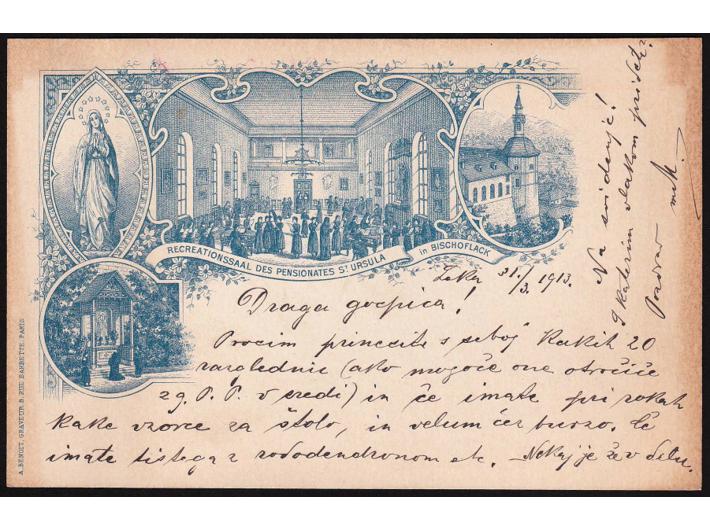 RECREATIONSSAAL DES PENSIONATES ST URSULA in BISCHOFLACK
A. BENOIT, GRAVEUR 8. RUE BARBETTE. PARIS
Loka 31./3. 1913.
Draga gospica!
Prosim prinesite s seboj kakih 20
razglednic (ako mogoče one otročiče
z g. P. P. v sredi) in če imate pri rokah
kake vzorce za štolo, in velum čez burzo. Če
imate tistega z rododendronom etc. – Nekaj je že v delu.
Na svidenje!
S katerim vlakom pridete?
Pozdrav